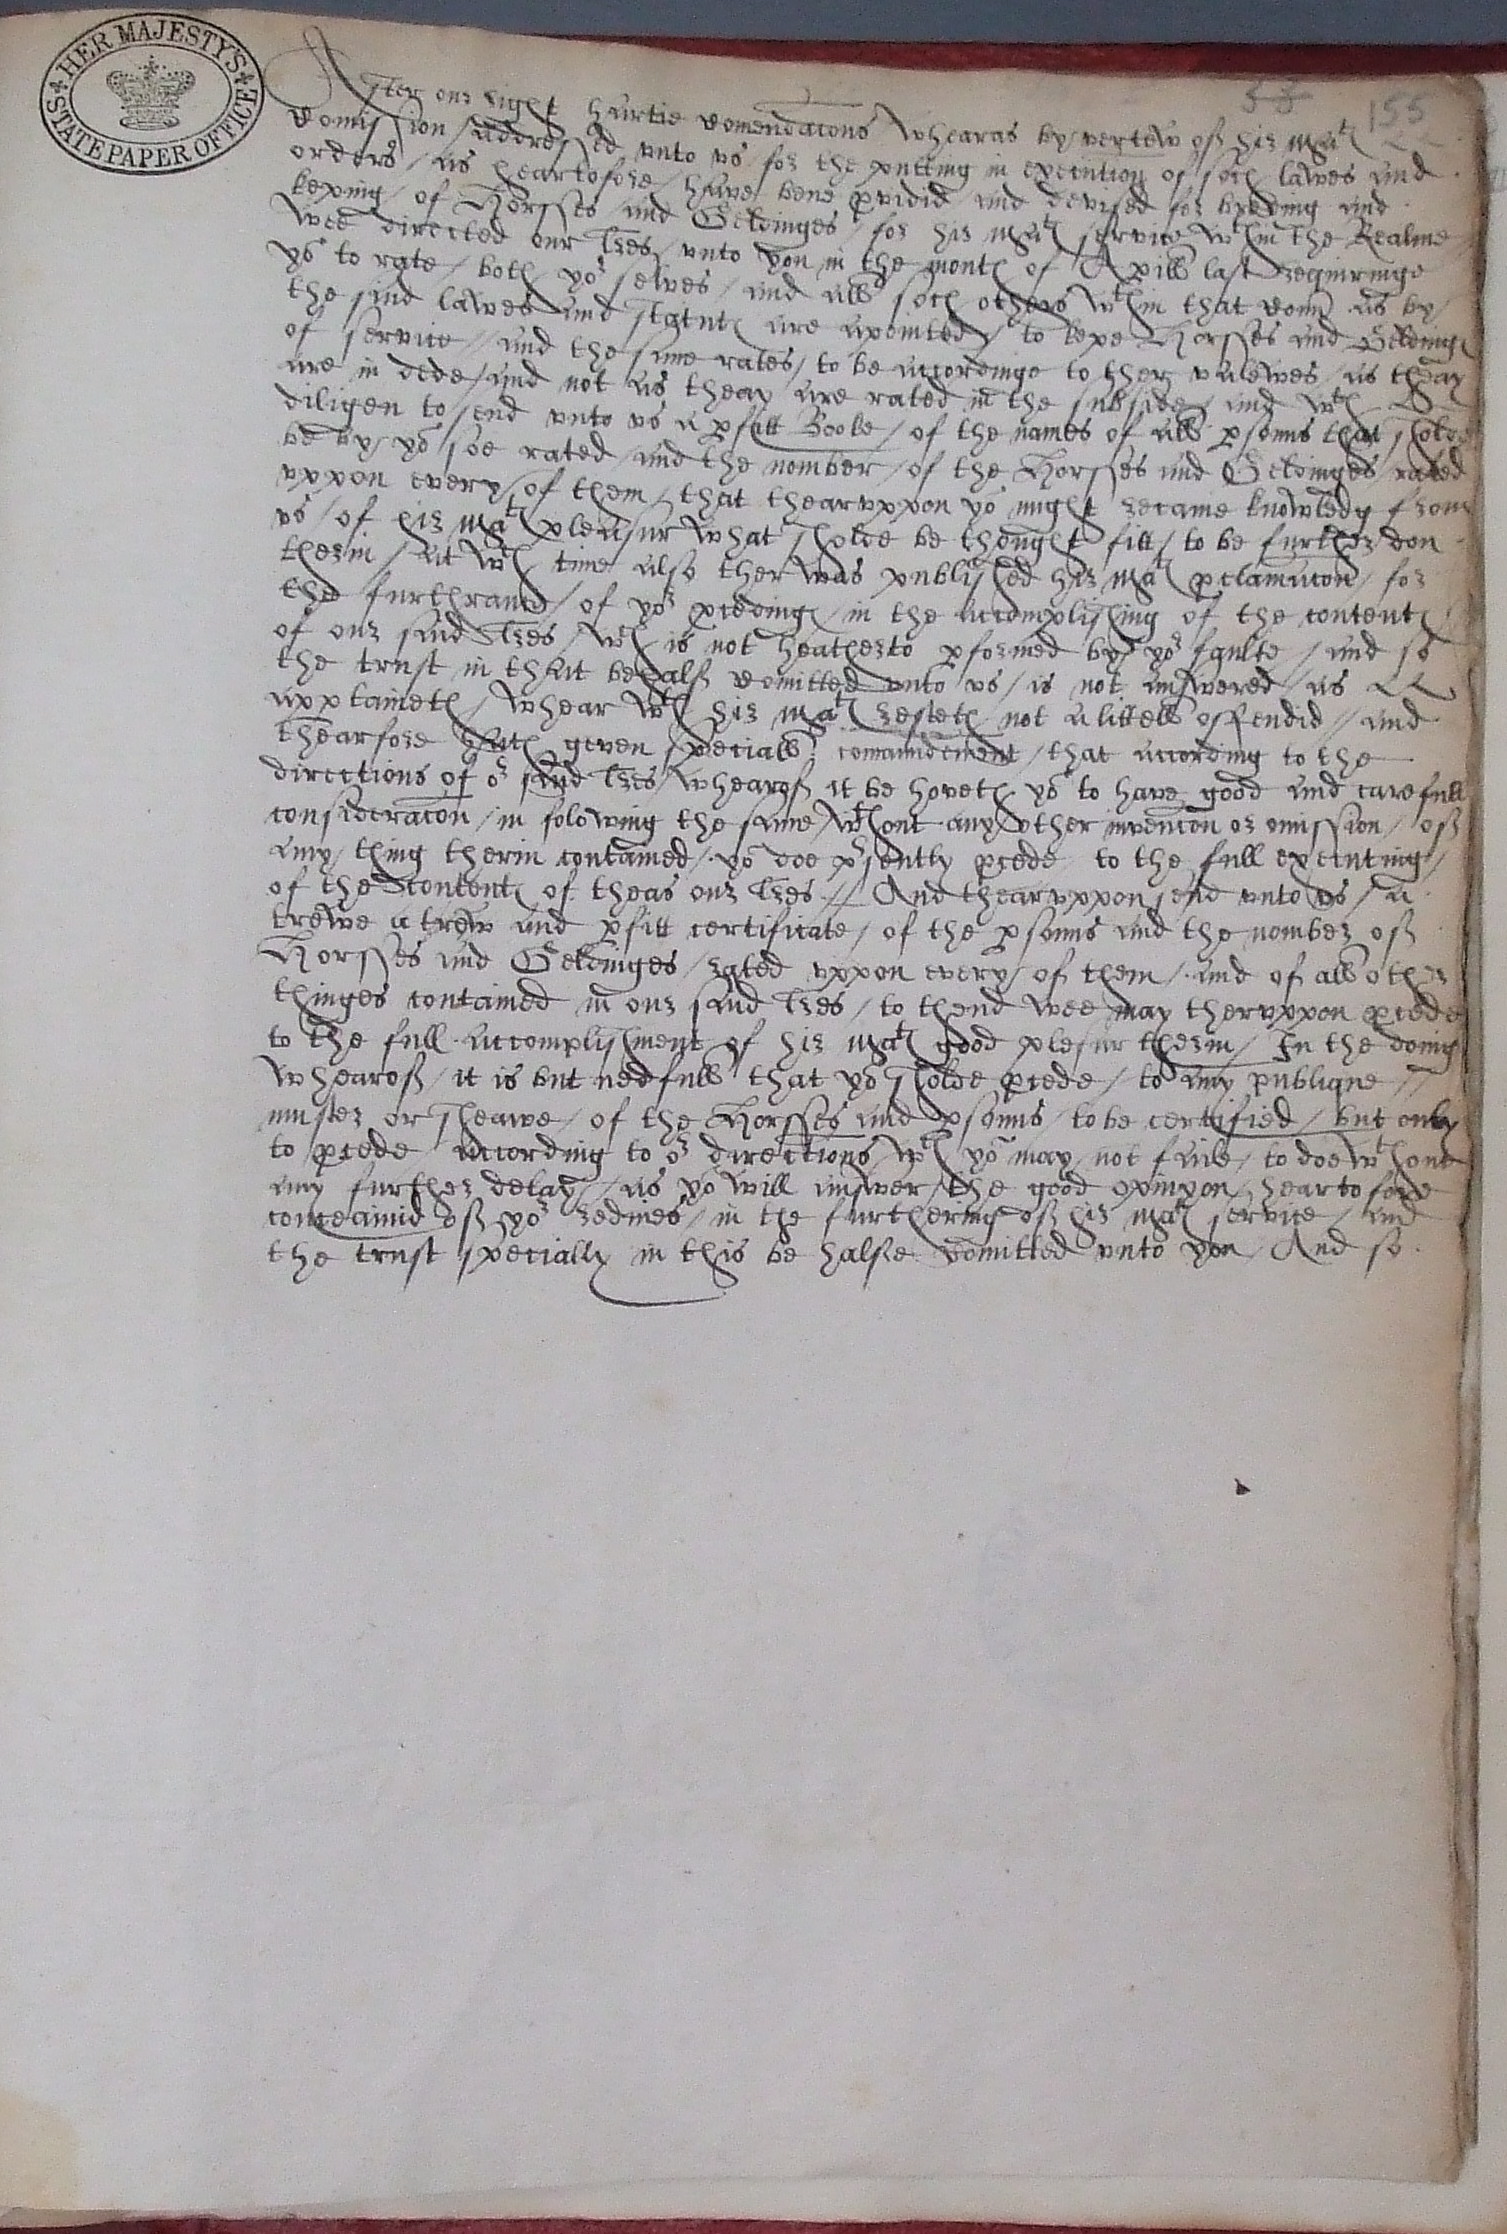 HER MAJESTY'S STATE PAPER OFFICE
53 155
After our right hartie Comendacons Whearas by vertew of hir Ma^ts
Comission / addressed vnto vs for the putting in execution of soch lawes and
orders / as heartofore / have bene pvidid / and devised for breding and
keping / of Horsses and Geldinges / for hir Ma^ts service w^thin the Realme /
Wee directed our lres / vnto you in the month of Aprill last requiringe
yo^u to rate / both yo^r selves / and all soch others w^thin that Com as by /
the said lawes and statut^es are apointed / to kepe Horsses and Gelding^es
of service // and the same rates / to be accordinge to ther valewes / as theay
are in dede / and not as theay are rated in the subside / and w^th
diligen to send vnto vs a pfatt Booke / of the names of all psonns that sholde
be by / yo^u soe rated / and the nomber / of the Horsses and Geldinges / rated
vppon every / of them / that thearvppon yo^u might receaue knowledg from
vs / of hir Ma^ts pleasur what sholde be thought fitt / to be further don
therin / At w^ch time also ther was published hir Ma^ts pclamacon / for
the furthrance / of yo^r pceding^es / in the accomplishing of the content^es
of our said lres / w^ch is not heatherto pformed by yo^r faulte / and so
the trust in that behalf Comitted vnto vs / is not answered as
apptaineth / Whear w^th hir Ma^ts resteth not a littell offendid // and
thearfore hath geven speciall comaundement / that according to the
directions of o^r said lres / whearof it be hoveth yo^u to have good and carefull
consideracon / in folowing the same / w^thout any other invencon or omission / of
any / thing therin contained / yo^u doe p^rsently pcede to the full executing /
of the content^es of theas our lres // And thearvppon send vnto vs / a
trewe a trew and pfitt certificate / of the psonns and the nomber of
Horsses and Geldinges / rated vppon every of them / and of all other
thinges contained in our said lres / to thend wee may thervppon pcede
to the full accomplishment of hir Ma^ts good plesur therin / In the doing
whearof / it is but nedfull that yo^u sholde pcede / to any publique //
muster or sheawe / of the Horsses and psonns / to be certified / but only
to pcede according to o^r directions w^ch yo^u may not faile / to doe w^thout
any further delay / as yo^u will answer / the good opinyon / heartofore
conceaivid of yo^r redines / in the furthering of hir Ma^ts service / and
the trust specially in this be halfe Comitted vnto you / And so